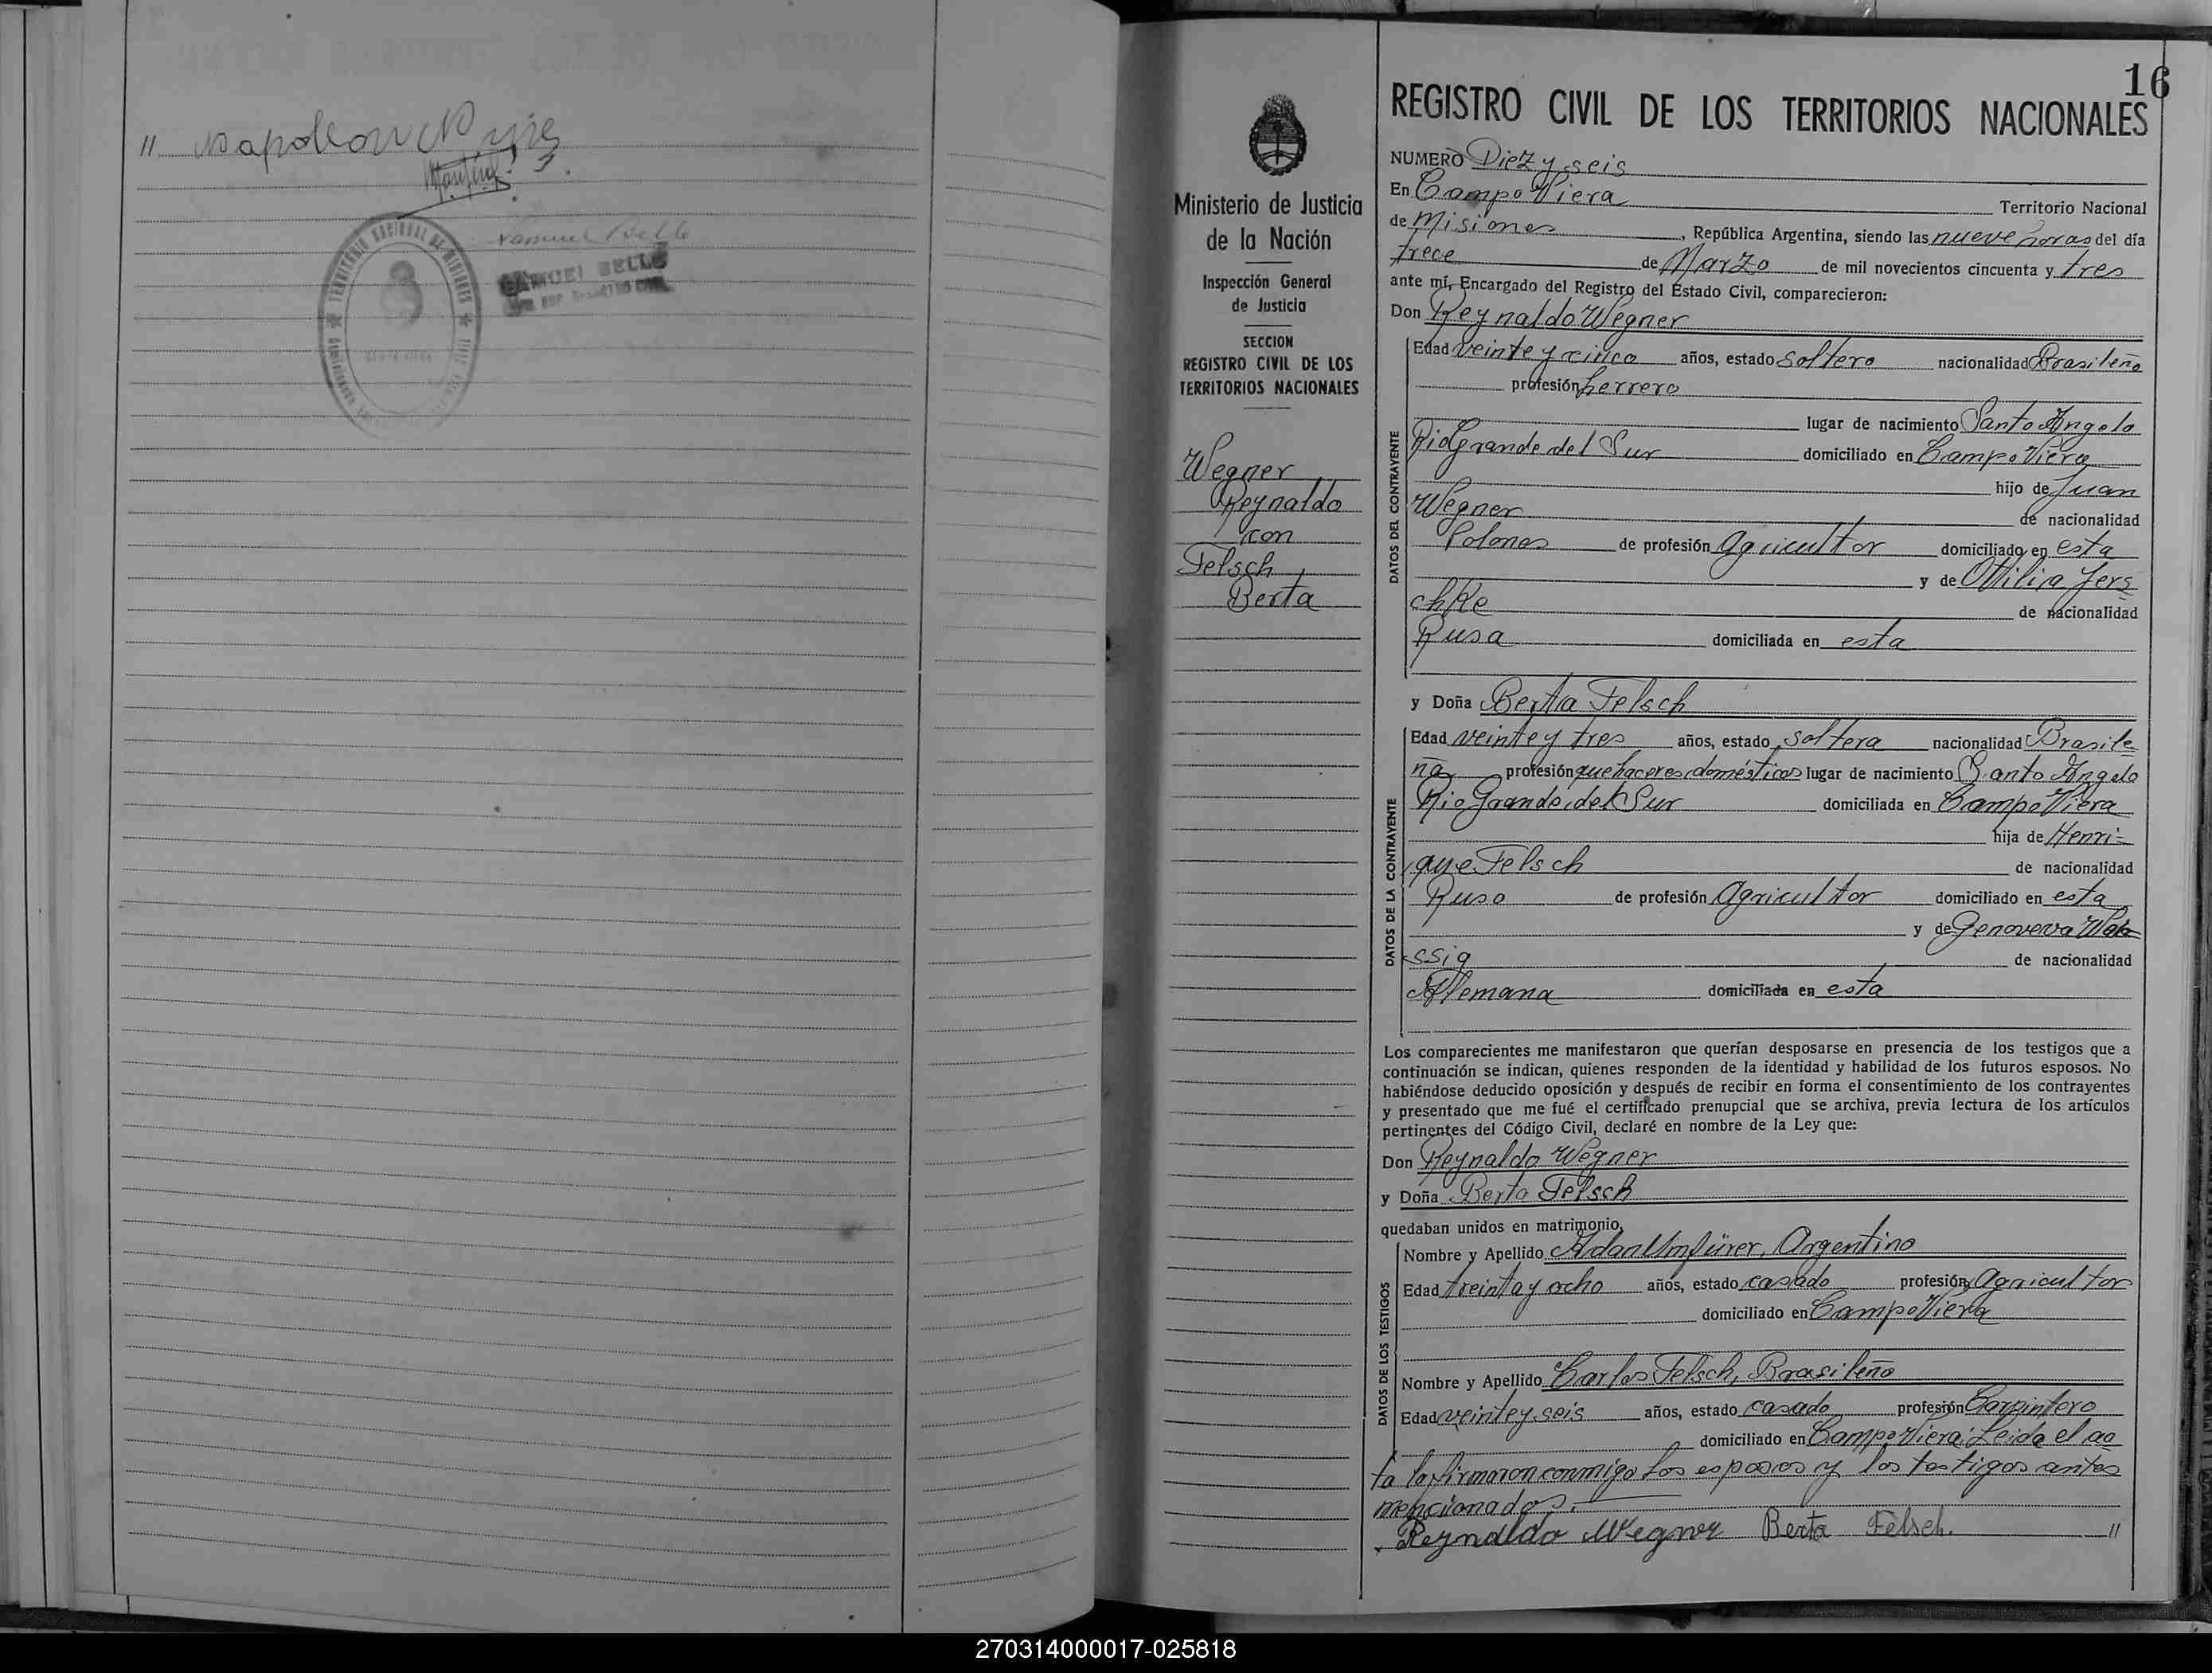 " Napoleon
TERRITORIO NACIONAL DE MISIONES
Samuel Bello
SAMUEL BELLO
16
REGISTRO CIVIL DE LOS TERRITORIOS NACIONALES
Ministerio de Justicia
de la Nación
Inspección General
de Justicia
SECCION
REGISTRO CIVIL DE LOS
TERRITORIOS NACIONALES
Wegner
Reynaldo
con
Felsch
Berta
NUMERO Diez y seis
En Campo Viera Territorio Nacional
de Misiones, República Argentina, siendo las nueve horas del día
trece de Marzo de mil novecientos cincuenta y tres
ante mí, Encargado del Registro del Estado Civil, comparecieron:
Don Reynaldo Wegner
DATOS DEL CONTRAYENTE
Edad veinte y cinco años, estado soltero nacionalidad Brasileño
profesión herrero
lugar de nacimiento Santo Angelo
Rio Grande del Sur domiciliado en Campo Viera
hijo de Juan
Wegner de nacionalidad
Polones de profesión Agricultor domiciliado en esta
y de Ottilia Jers
chke de nacionalidad
Rusa domiciliada en esta
y Doña Berta Felsch
DATOS DE LA CONTRAYENTE
Edad veinte y tres años, estado soltera nacionalidad Brasile-
ña profesión quehaceres domésticos lugar de nacimiento Santo Angelo
Rio Grande del Sur domiciliada en Campo Viera
hija de Henri=
que Felsch de nacionalidad
Ruso de profesión Agricultor domiciliado en esta
y de Genoveva
ssig de nacionalidad
Alemana domiciliada en esta
Los comparecientes me manifestaron que querían desposarse en presencia de los testigos que a
continuación se indican, quienes responden de la identidad y habilidad de los futuros esposos. No
habiéndose deducido oposición y después de recibir en forma el consentimiento de los contrayentes
y presentado que me fué el certificado prenupcial que se archiva, previa lectura de los artículos
pertinentes del Código Civil, declaré en nombre de la Ley que:
Don Reynaldo Wegner
y Doña Berta Felsch
quedaban unidos en matrimonio,
DATOS DE LOS TESTIGOS
Nombre y Apellido Adan Umfürer, Argentino
Edad treinta y ocho años, estado casado profesión Agricultor
domiciliado en Campo Viera
Nombre y Apellido Carlos Felsch, Brasileño
Edad veinte y seis años, estado casado profesión Carpintero
domiciliado en Campo Viera; Leida el ac
ta la firmaron conmigo los esposos y los testigos antes
mencionados.
Reynaldo Wegner Berta Felsch. "
270314000017-025818